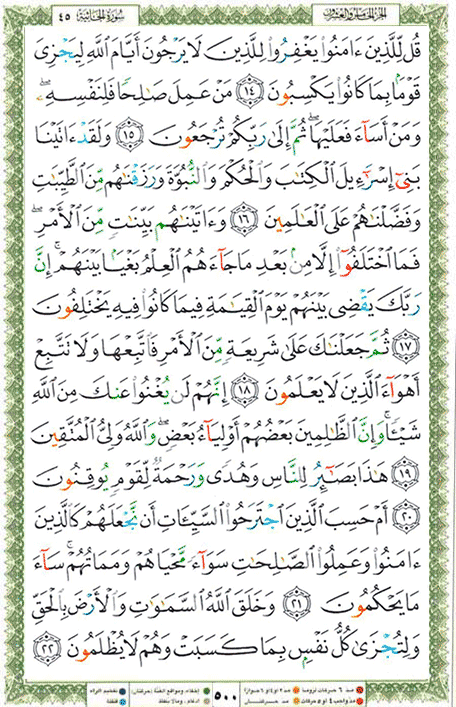 الجزء الخامس والعشرون سورة الجاثية ٤٥
قُل لِّلَّذِينَ ءَامَنُوا۟ يَغْفِرُوا۟ لِلَّذِينَ لَا يَرْجُونَ أَيَّامَ ٱللَّهِ لِيَجْزِىَ
قَوْمًۢا بِمَا كَانُوا۟ يَكْسِبُونَ ١٤ مَنْ عَمِلَ صَٰلِحًا فَلِنَفْسِهِۦ ۖ
وَمَنْ أَسَآءَ فَعَلَيْهَا ۖ ثُمَّ إِلَىٰ رَبِّكُمْ تُرْجَعُونَ ١٥ وَلَقَدْ ءَاتَيْنَا
بَنِىٓ إِسْرَٰٓءِيلَ ٱلْكِتَٰبَ وَٱلْحُكْمَ وَٱلنُّبُوَّةَ وَرَزَقْنَٰهُم مِّنَ ٱلطَّيِّبَٰتِ
وَفَضَّلْنَٰهُمْ عَلَى ٱلْعَٰلَمِينَ ١٦ وَءَاتَيْنَٰهُم بَيِّنَٰتٍ مِّنَ ٱلْأَمْرِ ۖ
فَمَا ٱخْتَلَفُوٓا۟ إِلَّا مِنۢ بَعْدِ مَا جَآءَهُمُ ٱلْعِلْمُ بَغْيًۢا بَيْنَهُمْ ۚ إِنَّ
رَبَّكَ يَقْضِى بَيْنَهُمْ يَوْمَ ٱلْقِيَٰمَةِ فِيمَا كَانُوا۟ فِيهِ يَخْتَلِفُونَ
١٧ ثُمَّ جَعَلْنَٰكَ عَلَىٰ شَرِيعَةٍ مِّنَ ٱلْأَمْرِ فَٱتَّبِعْهَا وَلَا تَتَّبِعْ
أَهْوَآءَ ٱلَّذِينَ لَا يَعْلَمُونَ ١٨ إِنَّهُمْ لَن يُغْنُوا۟ عَنكَ مِنَ ٱللَّهِ
شَيْـًٔا ۚ وَإِنَّ ٱلظَّٰلِمِينَ بَعْضُهُمْ أَوْلِيَآءُ بَعْضٍ ۖ وَٱللَّهُ وَلِىُّ ٱلْمُتَّقِينَ
١٩ هَٰذَا بَصَٰٓئِرُ لِلنَّاسِ وَهُدًى وَرَحْمَةٌ لِّقَوْمٍ يُوقِنُونَ
٢٠ أَمْ حَسِبَ ٱلَّذِينَ ٱجْتَرَحُوا۟ ٱلسَّيِّـَٔاتِ أَن نَّجْعَلَهُمْ كَٱلَّذِينَ
ءَامَنُوا۟ وَعَمِلُوا۟ ٱلصَّٰلِحَٰتِ سَوَآءً مَّحْيَاهُمْ وَمَمَاتُهُمْ ۚ سَآءَ
مَا يَحْكُمُونَ ٢١ وَخَلَقَ ٱللَّهُ ٱلسَّمَٰوَٰتِ وَٱلْأَرْضَ بِٱلْحَقِّ
وَلِتُجْزَىٰ كُلُّ نَفْسٍۭ بِمَا كَسَبَتْ وَهُمْ لَا يُظْلَمُونَ ٢٢
مد ٦ حركات لزوماً مد ٢ أو ٤ أو ٦ جوازاً إخفاء، ومواقع الغنة (حركتان) تفخيم الراء
مد حركتان ٥٠٠ قلقلة